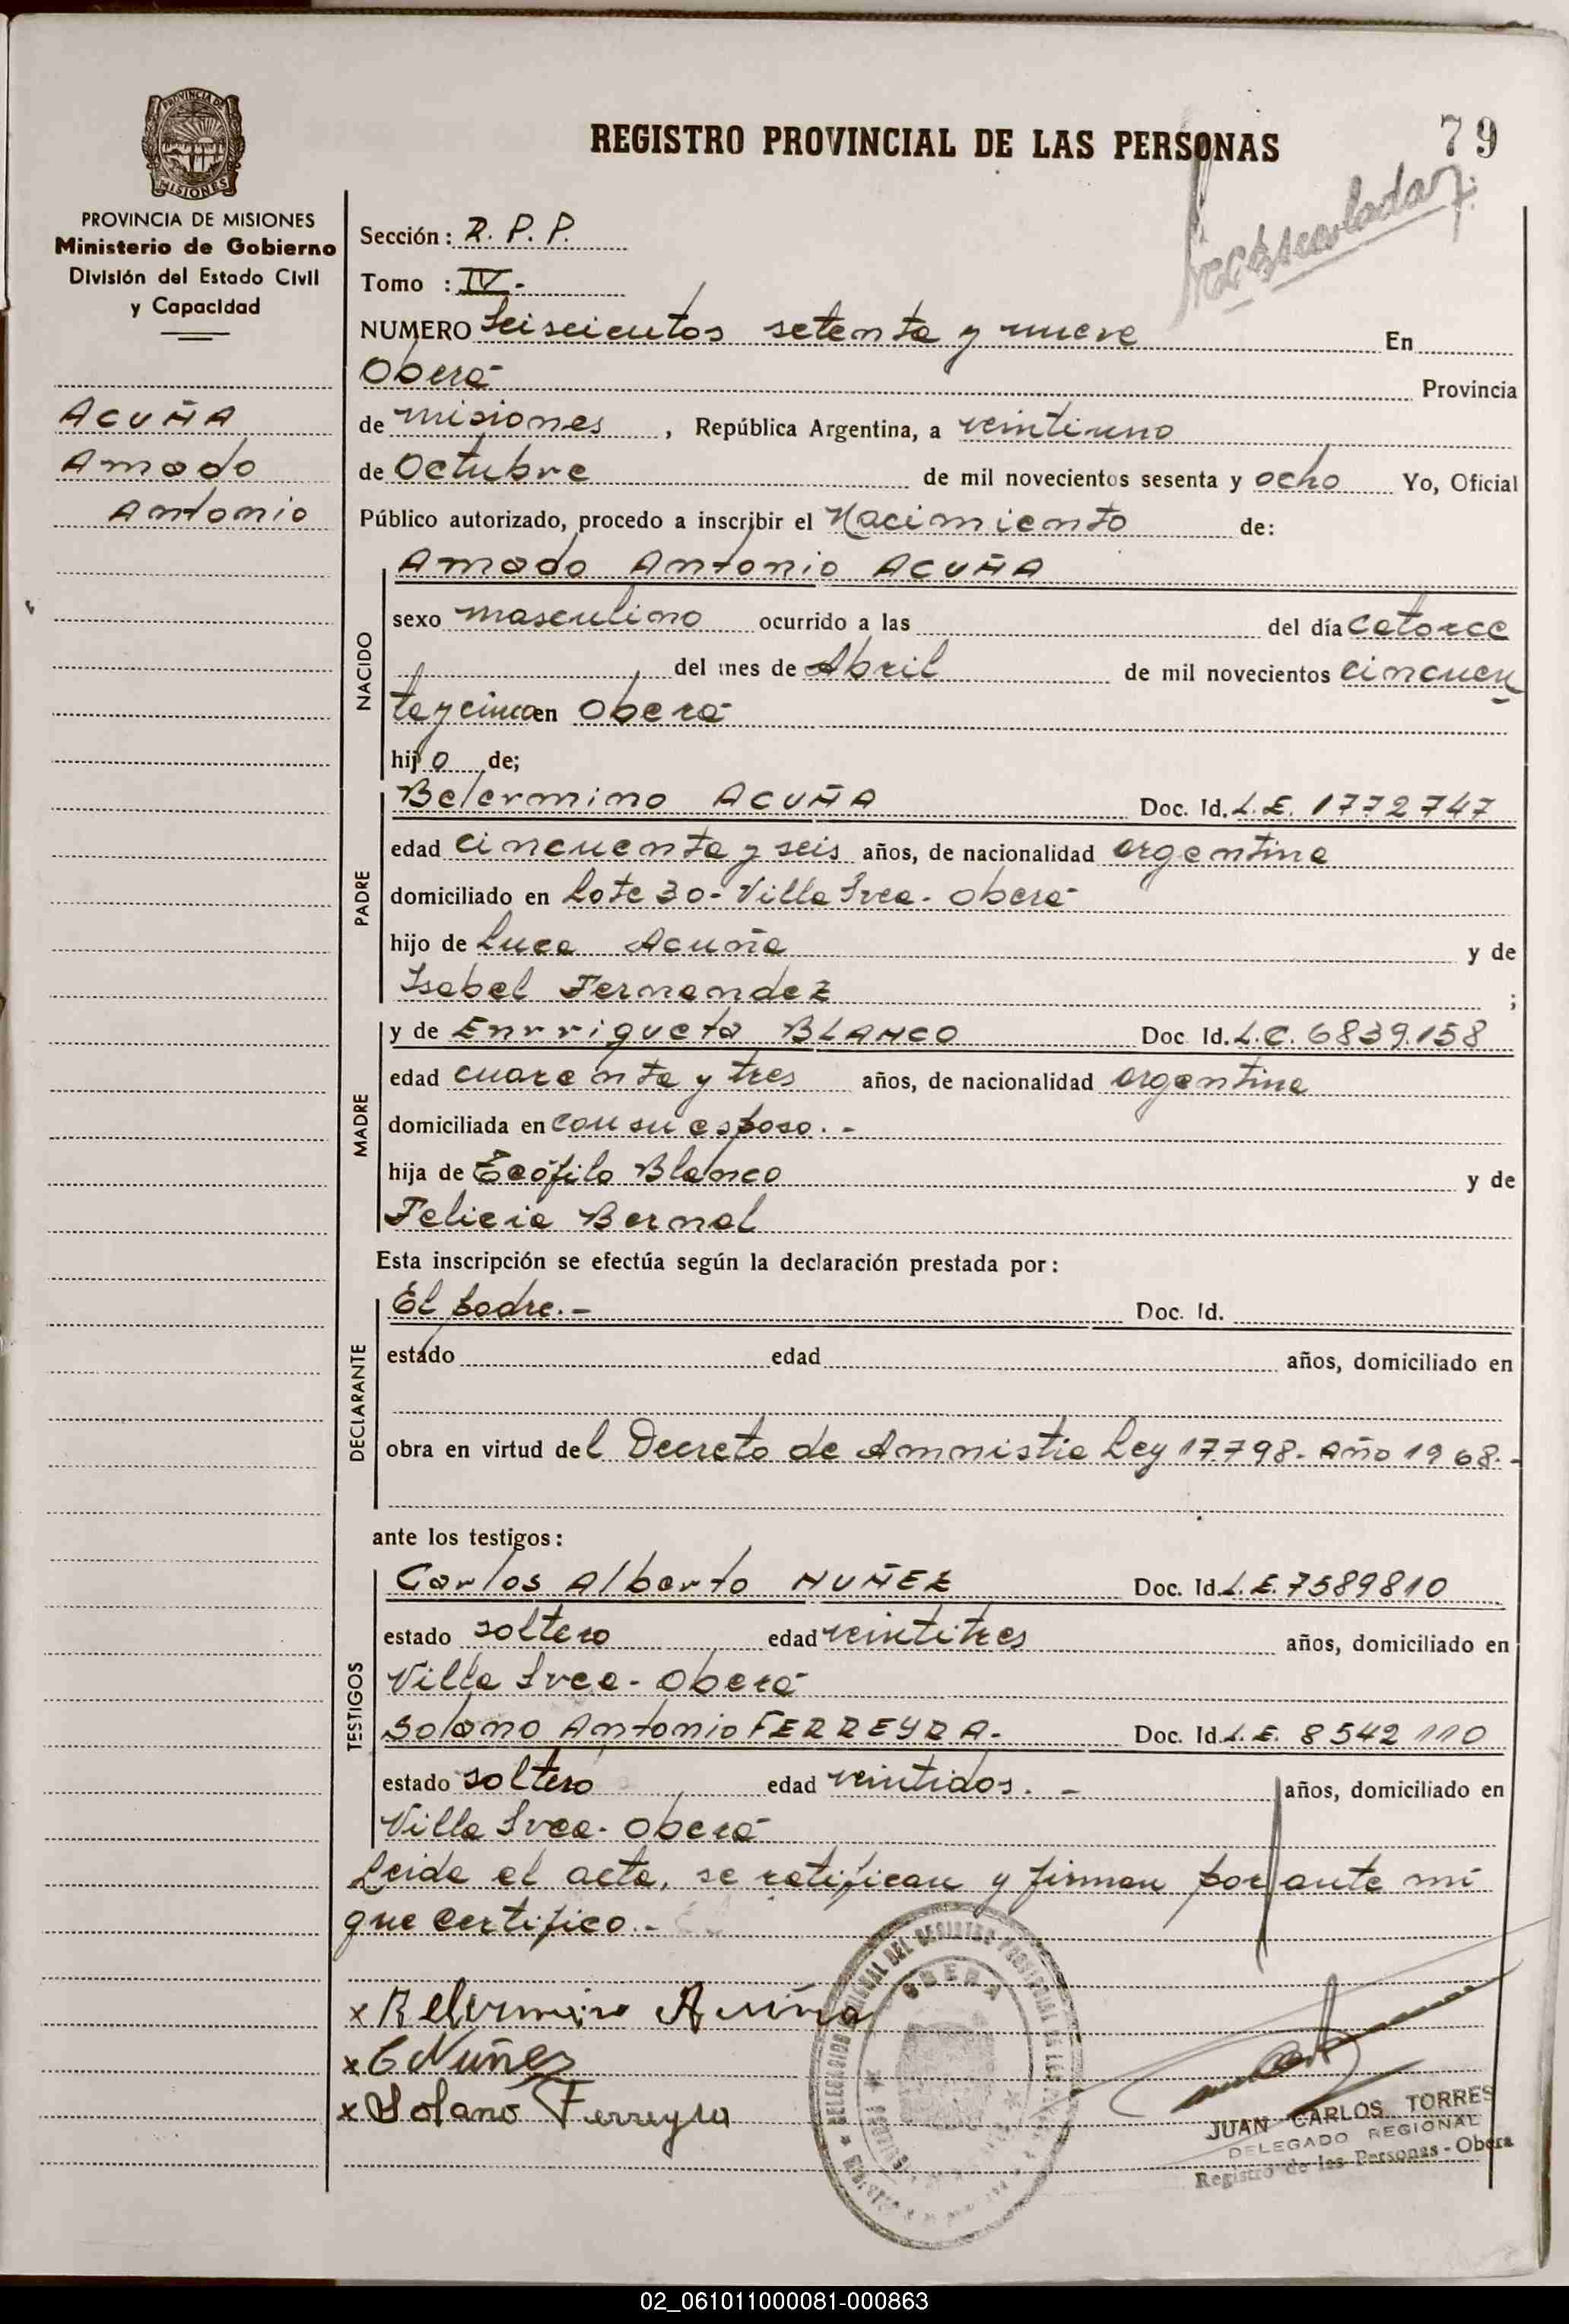 REGISTRO PROVINCIAL DE LAS PERSONAS
79
PROVINCIA DE MISIONES
PROVINCIA DE MISIONES
Ministerio de Gobierno
División del Estado Civil
y Capacidad
ACUÑA
Amado
Antonio
Sección: R. P. P.
Tomo : IV.-
NUMERO Seiscientos setenta y nueve En
Oberá Provincia
de misiones, República Argentina, a veintiuno
de Octubre de mil novecientos sesenta y ocho Yo, Oficial
Público autorizado, procedo a inscribir el Nacimiento de:
NACIDO
Amado Antonio ACUÑA
sexo masculino ocurrido a las del día catorce
del mes de Abril de mil novecientos cincuen
ta y cinco en Oberá
hijo de;
PADRE
Belermino ACUÑA Doc. Id. L.E. 1772747
edad cincuenta y seis años, de nacionalidad argentina
domiciliado en Lote 30- Villa Svea- Oberá
hijo de Luca Acuña y de
Isabel Fernandez ;
MADRE
y de Enrriqueta BLANCO Doc. Id. L.C. 6839.158
edad cuarenta y tres años, de nacionalidad argentina
domiciliada en con su esposo.-
hija de Teófilo Blanco y de
Felicia Bernal
Esta inscripción se efectúa según la declaración prestada por:
DECLARANTE
El padre.- Doc. Id.
estado edad años, domiciliado en
obra en virtud del Decreto de Amnistia Ley 17.798- Año 1968.-
ante los testigos:
TESTIGOS
Carlos Alberto NUÑEZ Doc. Id. L.E. 7589810
estado soltero edad veintitres años, domiciliado en
Villa Svea- Oberá
Solano Antonio FERREYRA- Doc. Id. L.E. 8542110
estado soltero edad veintidos.- años, domiciliado en
Villa Svea- Oberá
Leida el acta, se ratifican y firman por ante mi
que certifico.-
x Belermino Acuña
x C Nuñez
x Solano Ferreyra
JUAN CARLOS TORRES
DELEGADO REGIONAL
Registro de las Personas - Obera
02_061011000081-000863